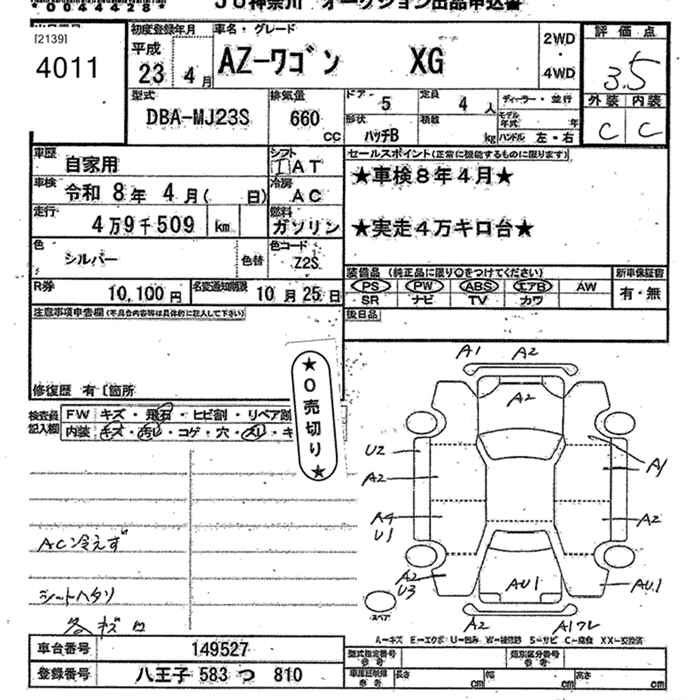 *0044428*
JU神奈川 オークション出品申込書
[2139]
4011
初度登録年月
平成
23 4 月
車名・グレード
AZ-ワゴン XG
2WD
・
4WD
評価点
3.5
外装 内装
C C
型式
DBA-MJ23S
排気量
660 CC
ドア・ 5
定員 4 人
形状 ハッチB
積載 kg
ディーラー・並行
モデル年式 年
ハンドル 左・右
車歴 自家用
シフト IAT
車検 令和 8 年 4 月( 日)
冷房 AC
走行 4万9千509 km
燃料 ガソリン
色 シルバー
色替
色コード Z2S
R券 10,100 円
名変通知期限 10 月 25 日
セールスポイント(正常に機能するものに限ります)
★車検8年4月★
★実走4万キロ台★
装備品(純正品に限り○をつけてください)
新車保証書
PS PW ABS エアB AW
SR ナビ TV カワ
有・無
後日品
注意事項申告欄(不具合内容等は具体的に記入して下さい)
修復歴 有〔箇所
★0売切り★
検査員記入欄
FW キズ・飛石・ヒビ割・リペア跡
内装 キズ・汚レ・コゲ・穴・スレ・キ
AC冷えず
シートヘタリ
各キズ
A1 A2
A2
U2
A2
A1
A4
U1
A2
A2
U3
AU1
AU1
スペア
A2
A1ワレ
A-キズ E-エクボ U-凹み W-補修跡 S-サビ C-腐食 XX-交換済
車台番号 149527
登録番号 八王子 583 つ 810
型式指定番号 参考
類別区分番号 参考
車庫証明用 参考
長さ cm
幅 cm
高さ cm